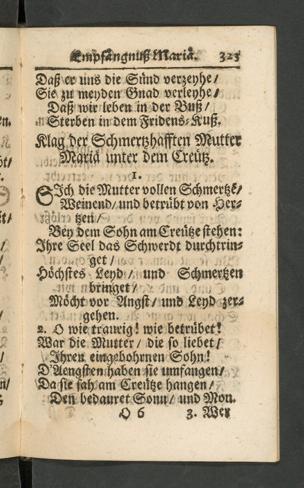 Empfängnuß Mariä. 323
Daß er uns die Sünd verzeyhe/
Sie zu meyden Gnad verleyhe/
Daß wir leben in der Buß/
Sterben in dem Fridens-Kuß.
Klag der Schmertzhafften Mutter
Mariä unter dem Creütz.
1.
SIch die Mutter vollen Schmertzē/
Weinend/ und betrübt von Her-
tzen/
Bey dem Sohn am Creütze stehen:
Ihre Seel das Schwerdt durchtrin-
get/
Höchstes Leyd/ und Schmertzen
bringet/
Möcht vor Angst/ und Leyd zer-
gehen.
2. O wie traurig! wie betrübet!
War die Mutter/ die so liebet/
Ihren eingebohrnen Sohn!
D'Aengsten haben sie umfangen/
Da sie sah am Creütze hangen/
Den bedauret Sonn/ und Mon.
O 6 3. Wer